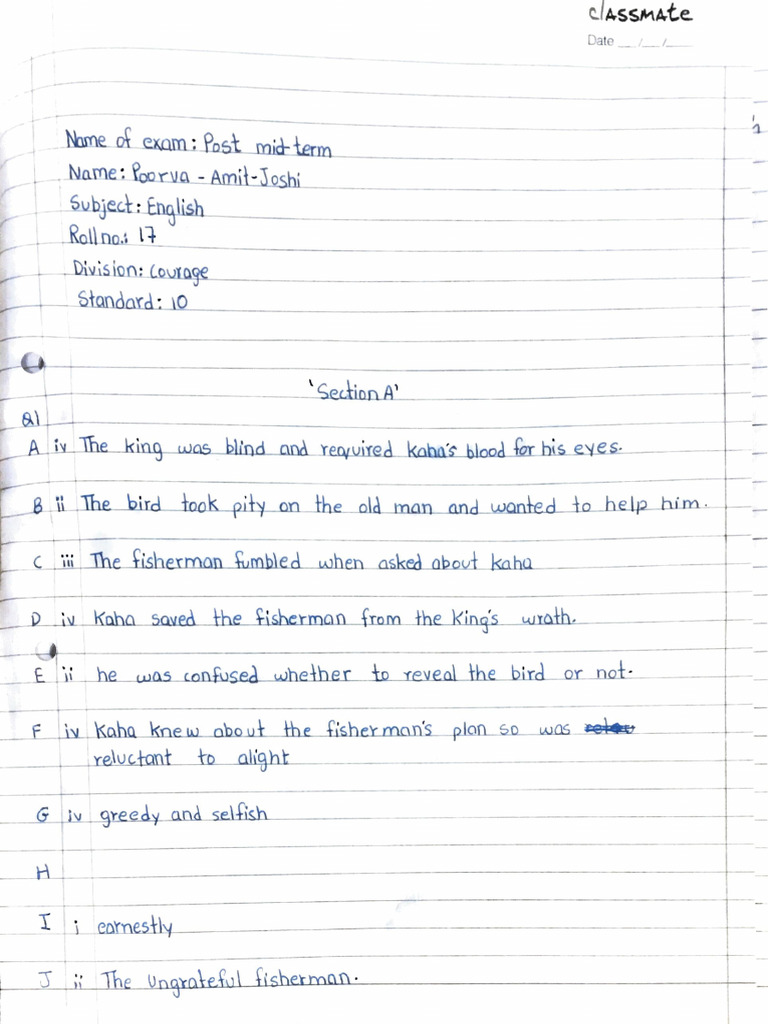 classmate
Date __/__/__
Name of exam: Post mid-term
Name: Poorva - Amit-Joshi
Subject: English
Roll no.: 17
Division: Courage
Standard: 10
'Section A'
Q1
A iv The king was blind and required kaha's blood for his eyes.
B ii The bird took pity on the old man and wanted to help him.
C iii The fisherman fumbled when asked about kaha
D iv Kaha saved the fisherman from the King's wrath.
E ii he was confused whether to reveal the bird or not.
F iv Kaha knew about the fisherman's plan so was
reluctant to alight
G iv greedy and selfish
H
I i earnestly
J ii The Ungrateful fisherman.